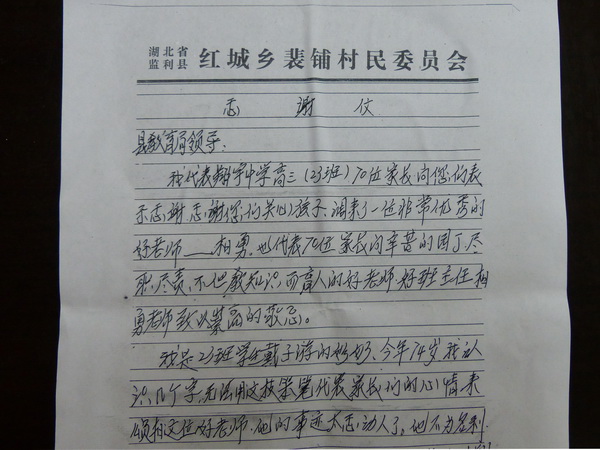 湖北省
监利县 红城乡裴铺村民委员会
感 谢 信
县教育局领导:
我代表翔宇中学高三(23班)70位家长向您们表
示感谢,感谢你们关心孩子,调来了一位非常优秀的
好老师——相勇,也代表70位家长向辛苦的园丁,尽
职,尽责,不但教知识,而育人的好老师好班主任相
勇老师致以崇高的敬意。
我是23班学生戴子游的奶奶,今年74岁,我认
识几个字,无法用这枝笨笔代表家长们的心情来
颂扬这位好老师,他的事迹太感动人了。他不为名利